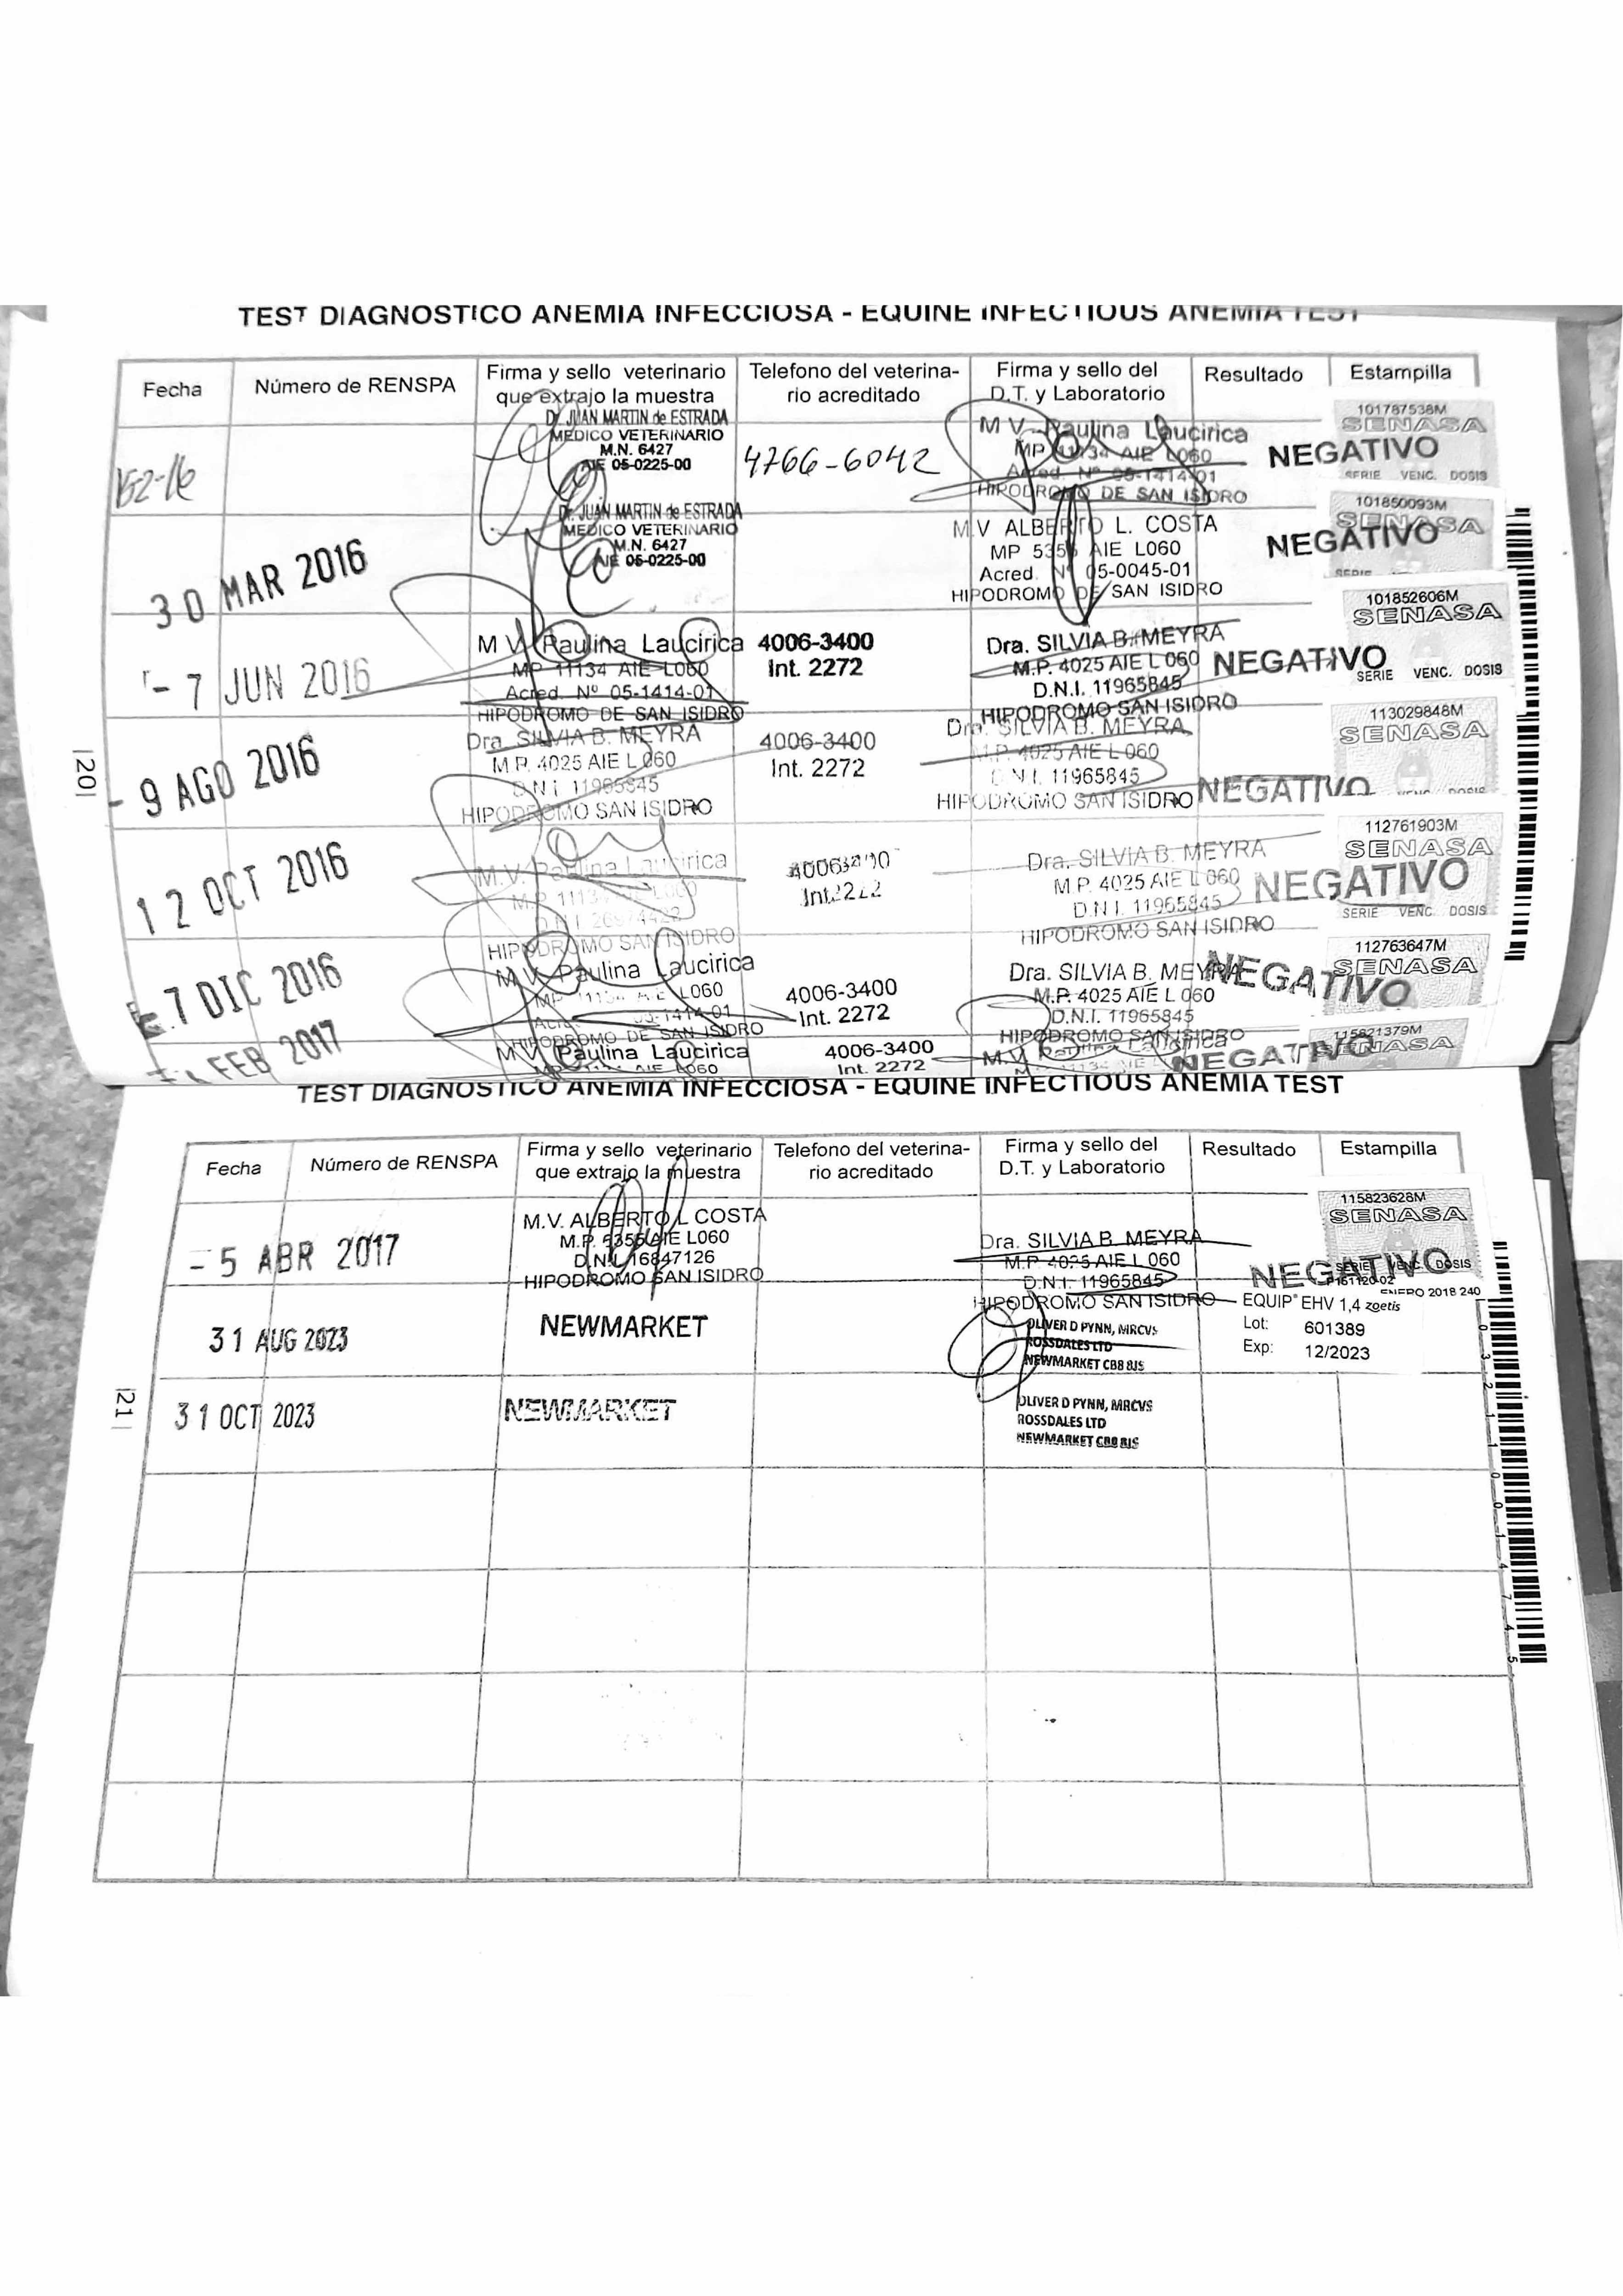 TEST DIAGNOSTICO ANEMIA INFECCIOSA - EQUINE INFECTIOUS ANEMIA TEST
Fecha
Número de RENSPA
Firma y sello veterinario
que extrajo la muestra
Telefono del veterina-
rio acreditado
Firma y sello del
D.T. y Laboratorio
Resultado
Estampilla
Dr. JUAN MARTIN de ESTRADA
MEDICO VETERINARIO
M.N. 6427
AIE 05-0225-00
4766-6042
M V Paulina Laucirica
MP 11134 AIE L060
Acred. Nº 05-1414-01
HIPODROMO DE SAN ISIDRO
NEGATIVO
101787538M
SENASA
SERIE VENC. DOSIS
30 MAR 2016
Dr. JUAN MARTIN de ESTRADA
MEDICO VETERINARIO
M.N. 6427
AIE 05-0225-00
M.V ALBERTO L. COSTA
MP 5356 AIE L060
Acred. Nº 05-0045-01
HIPODROMO DE SAN ISIDRO
NEGATIVO
101850093M
SENASA
SERIE
- 7 JUN 2016
M V. Paulina Laucirica
MP 11134 AIE L060
Acred. Nº 05-1414-01
HIPODROMO DE SAN ISIDRO
4006-3400
Int. 2272
Dra. SILVIA B. MEYRA
M.P. 4025 AIE L 060
D.N.I. 11965845
HIPODROMO SAN ISIDRO
NEGATIVO
101852606M
SENASA
SERIE VENC. DOSIS
|20|
- 9 AGO 2016
Dra. SILVIA B. MEYRA
M.P. 4025 AIE L 060
D.N.I. 11965845
HIPODROMO SAN ISIDRO
4006-3400
Int. 2272
Dra. SILVIA B. MEYRA
M.P. 4025 AIE L 060
D.N.I. 11965845
HIPODROMO SAN ISIDRO
NEGATIVO
113029848M
SENASA
12 OCT 2016
M.V. Paulina Laucirica
HIPODROMO SAN ISIDRO
Int.2272
Dra. SILVIA B. MEYRA
M.P. 4025 AIE L 060
D.N.I. 11965845
HIPODROMO SAN ISIDRO
NEGATIVO
112761903M
SENASA
SERIE VENC. DOSIS
7 DIC 2016
M.V. Paulina Laucirica
L060
HIPODROMO DE SAN ISIDRO
4006-3400
Int. 2272
Dra. SILVIA B. MEYRA
M.P. 4025 AIE L 060
D.N.I. 11965845
HIPODROMO SAN ISIDRO
NEGATIVO
112763647M
SENASA
FEB 2017
M.V. Paulina Laucirica
AIE L060
4006-3400
Int. 2272
M.V. Paulina Laucirica
NEGATIVO
115821379M
SENASA
TEST DIAGNOSTICO ANEMIA INFECCIOSA - EQUINE INFECTIOUS ANEMIA TEST
Fecha
Número de RENSPA
Firma y sello veterinario
que extrajo la muestra
Telefono del veterina-
rio acreditado
Firma y sello del
D.T. y Laboratorio
Resultado
Estampilla
- 5 ABR 2017
M.V. ALBERTO L COSTA
M.P. 5356 AIE L060
D.N.I. 16847126
HIPODROMO SAN ISIDRO
Dra. SILVIA B. MEYRA
M.P. 4025 AIE L 060
D.N.I. 11965845
HIPODROMO SAN ISIDRO
NEGATIVO
115823628M
SENASA
SERIE VENC. DOSIS
ENERO 2018 240
31 AUG 2023
NEWMARKET
OLIVER D PYNN, MRCVS
ROSSDALES LTD
NEWMARKET CB8 8JS
EQUIP® EHV 1,4 zoetis
Lot: 601389
Exp: 12/2023
|21|
31 OCT 2023
NEWMARKET
OLIVER D PYNN, MRCVS
ROSSDALES LTD
NEWMARKET CB8 8JS